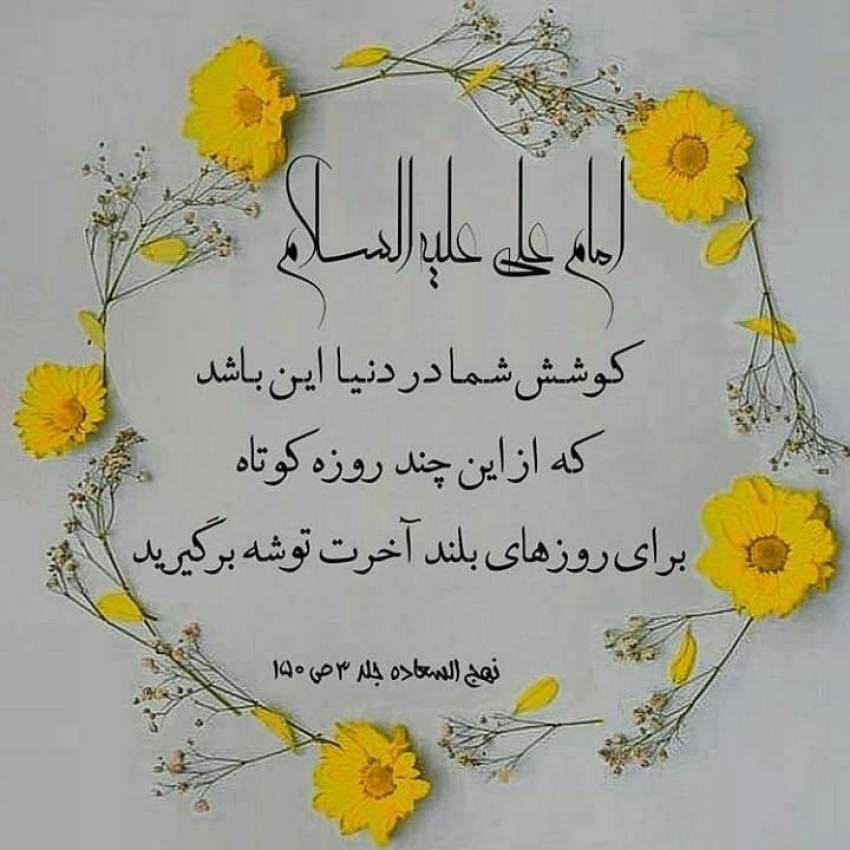 امام علی علیه السلام
کوشش شما در دنیا این باشد
که از این چند روزه کوتاه
برای روزهای بلند آخرت توشه برگیرید
نهج السعاده جلد ۳ ص ۱۵۰